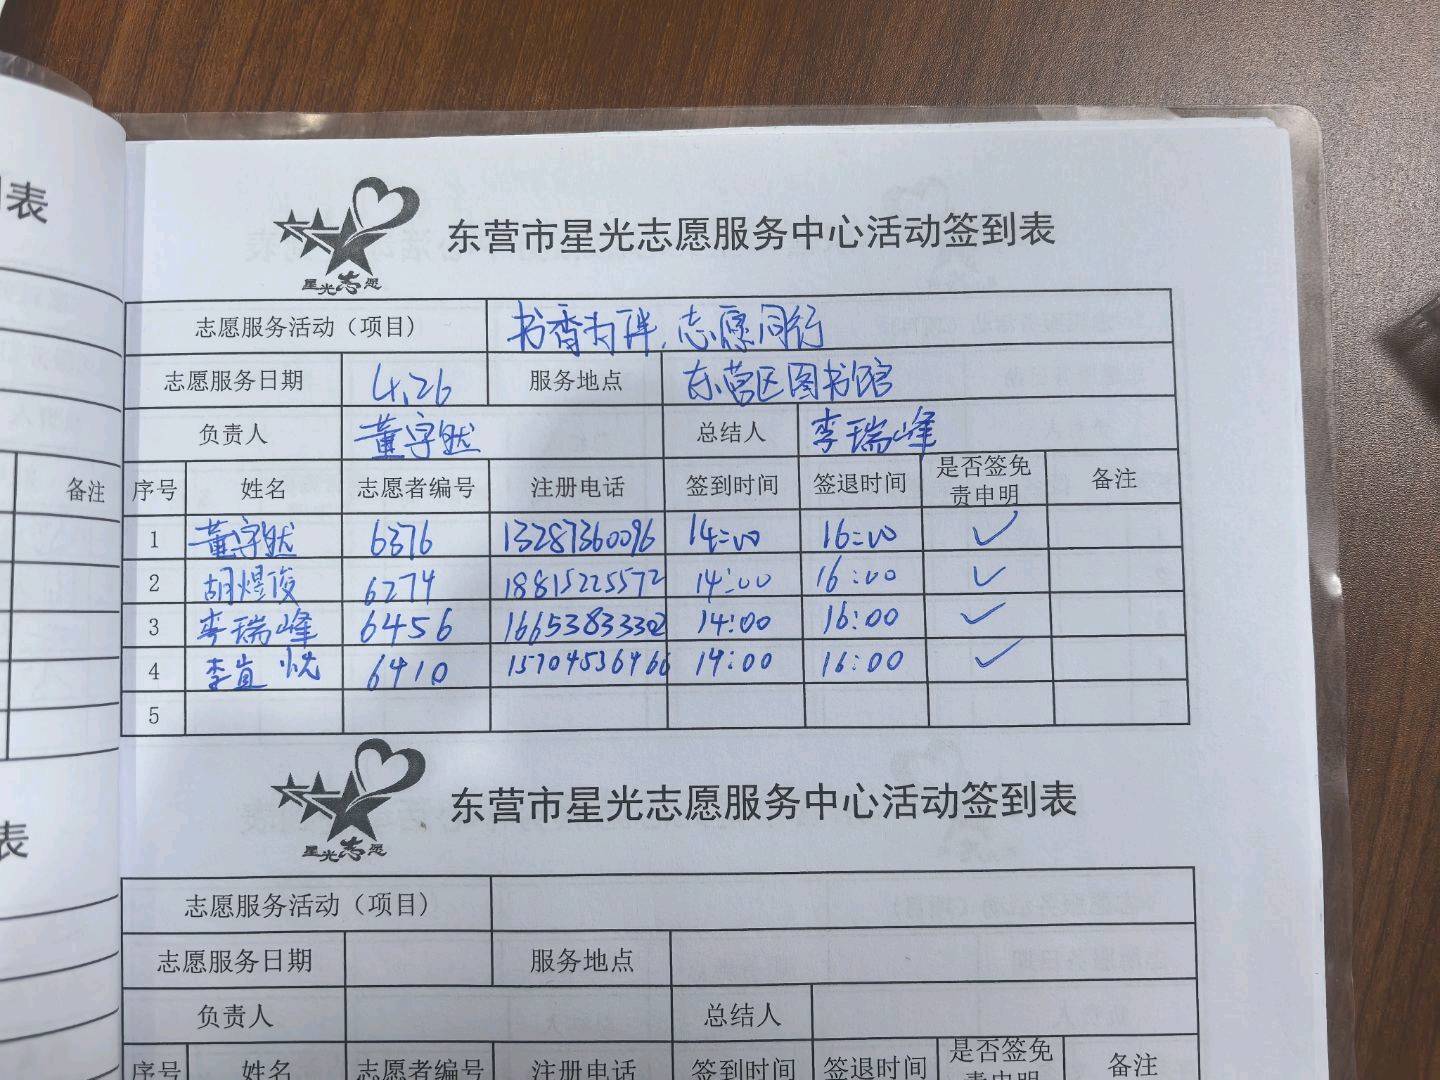 表
备注
表
星光志愿
东营市星光志愿服务中心活动签到表
志愿服务活动（项目） 书香为伴，志愿同行
志愿服务日期 4.26 服务地点 东营区图书馆
负责人 董字然 总结人 李瑞峰
序号 姓名 志愿者编号 注册电话 签到时间 签退时间 是否签免责申明 备注
1 董字然 6376 13287360096 14:00 16:00 ✓
2 胡煜俊 6274 18815225572 14:00 16:00 ✓
3 李瑞峰 6456 16653833302 14:00 16:00 ✓
4 李宜悦 6410 15704536466 14:00 16:00 ✓
5
星光志愿
东营市星光志愿服务中心活动签到表
志愿服务活动（项目）
志愿服务日期 服务地点
负责人 总结人
序号 姓名 志愿者编号 注册电话 签到时间 签退时间 是否签免责申明 备注